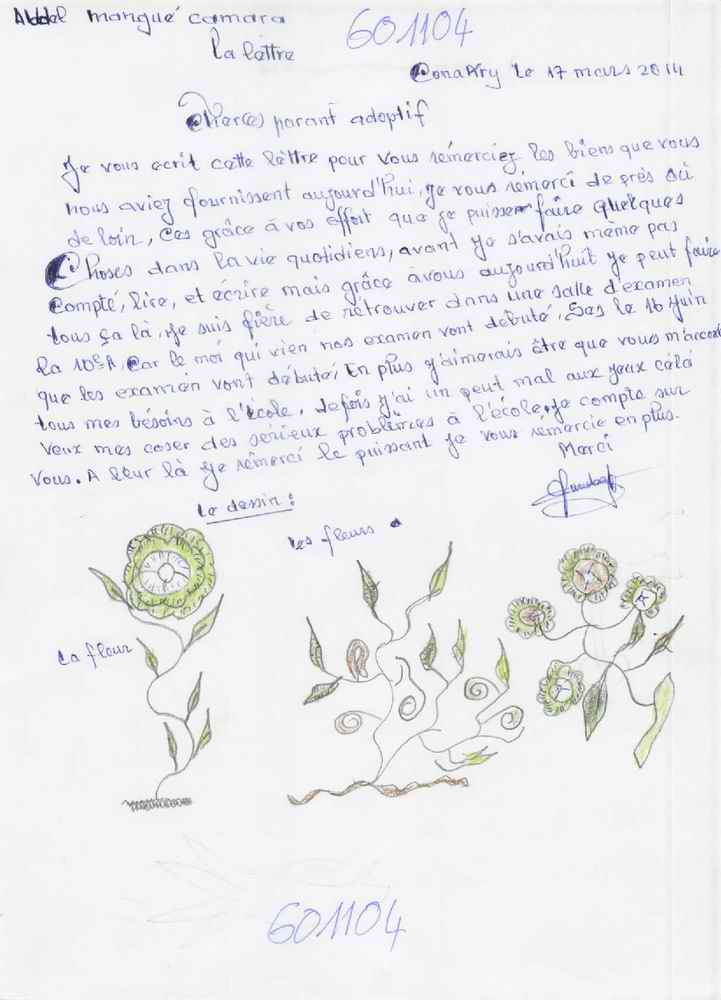 Abdel mangué camara
601104
La lèttre
Conakry le 17 mars 2014
Cher(e) parant adoptif
Je vous ecrit cette lèttre pour vous rémerciez les biens que vous
nous aviez fournissent aujourd'hui, je vous rémerci de près où
de loin, Ces grâce à vos effort que je puisse faire quelques
Choses dans la vie quotidiens, avant je s'avais même pas
compté, lire, et écrire mais grâce àvous aujourd'huit je peut faire
tous ça là, Je suis fière de rétrouver dans une salle d'examen
la 10èA, Car le moi qui vien nos examen vont débuté, Sas le 16 Juin
que les examen vont débuté, En plus j'aimerais être que vous m'accord
tous mes bésoins à l'école. Depuis j'ai un peut mal aux yeux célà
veux mes coser des sérieux problèmes à l'école, Je compte sur
vous. A leur là je rémerci le puissant je vous rémercie en plus.
Merci
Le dessin :
Les fleurs
La fleur
601104